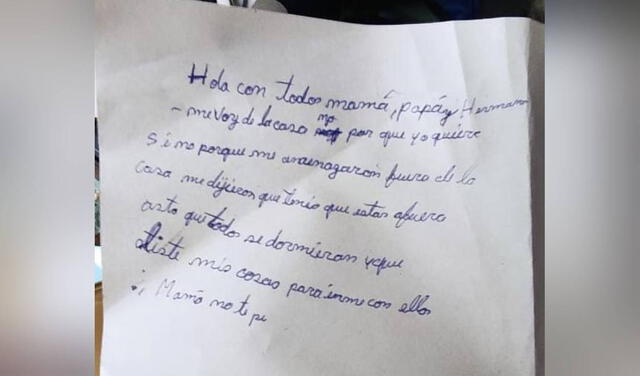 Hola con todos mamá, papá y Hermano
- me voy de la casa no por que yo quiere
Si no porque me amenazaron fuera de la
casa me dijieron que tenia que estar afuera
asta que todos se dormieran y que
aliste mis cosas para irme con ellos
¡ Mamá no te pe